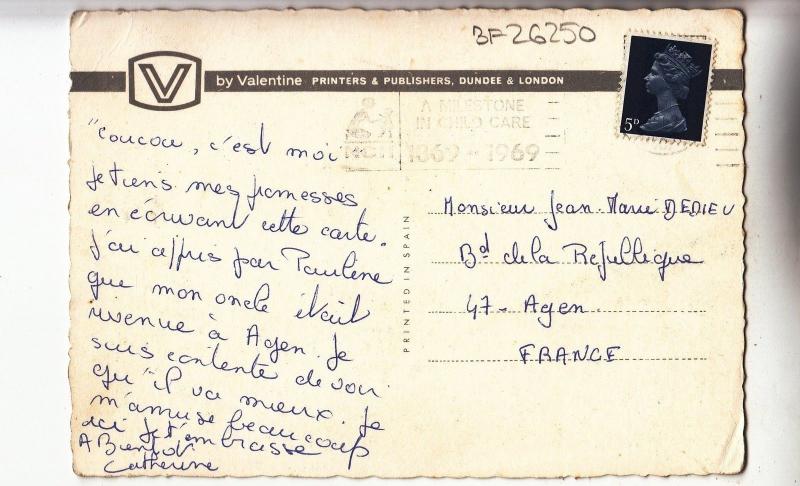 BF26250
V by Valentine PRINTERS & PUBLISHERS, DUNDEE & LONDON
5D
NCH
A MILESTONE
IN CHILD CARE
1869 - 1969
"Coucou, c'est moi
Je tiens mes promesses
en écrivant cette carte.
J'ai appris par Paulene
que mon oncle était
revenue à Agen. Je
suis contente de voir
qu'il va mieux. Je
m'amuse beaucoup
ici Je t'embrasse
A Bientôt
Catherine
PRINTED IN SPAIN
Monsieur Jean-Marie DEDIEU
Bd de la République
47 - Agen.
FRANCE